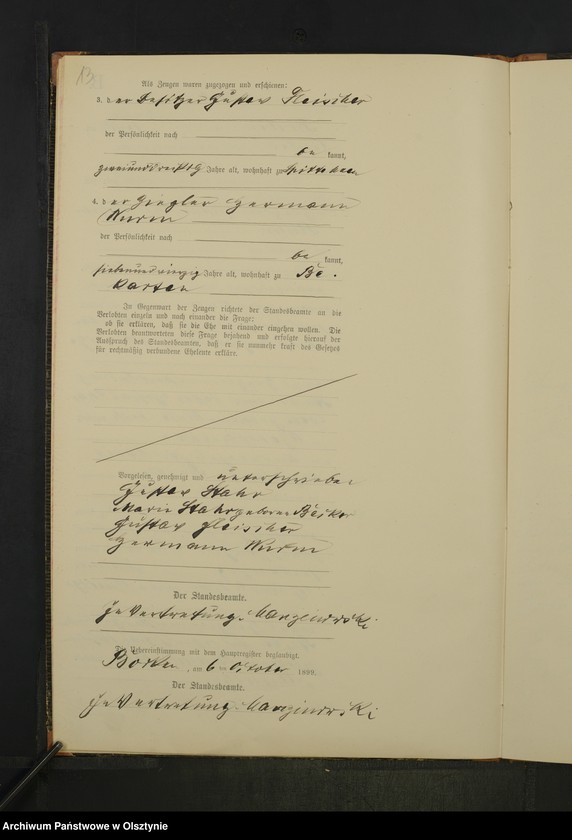 13
Als Zeugen waren zugezogen und erschienen:
3. der Besitzer Gustav Fleischer
der Persönlichkeit nach
be kannt,
zweiunddreißig Jahre alt, wohnhaft zu
4. der Ziegler Hermann
Wurm
der Persönlichkeit nach
be kannt,
siebenundvierzig Jahre alt, wohnhaft zu
In Gegenwart der Zeugen richtete der Standesbeamte an die
Verlobten einzeln und nach einander die Frage:
ob sie erklären, daß sie die Ehe mit einander eingehen wollen. Die
Verlobten beantworteten diese Frage bejahend und erfolgte hierauf der
Ausspruch des Standesbeamten, daß er sie nunmehr kraft des Gesetzes
für rechtmäßig verbundene Eheleute erkläre.
Vorgelesen, genehmigt und unterschrieben
Gustav Stahr
Marie Stahr geborene
Gustav Fleischer
Hermann Wurm
Der Standesbeamte.
In Vertretung:
Die Uebereinstimmung mit dem Hauptregister beglaubigt.
am 6 ten Oktober 1899.
Der Standesbeamte.
In Vertretung
Archiwum Państwowe w Olsztynie